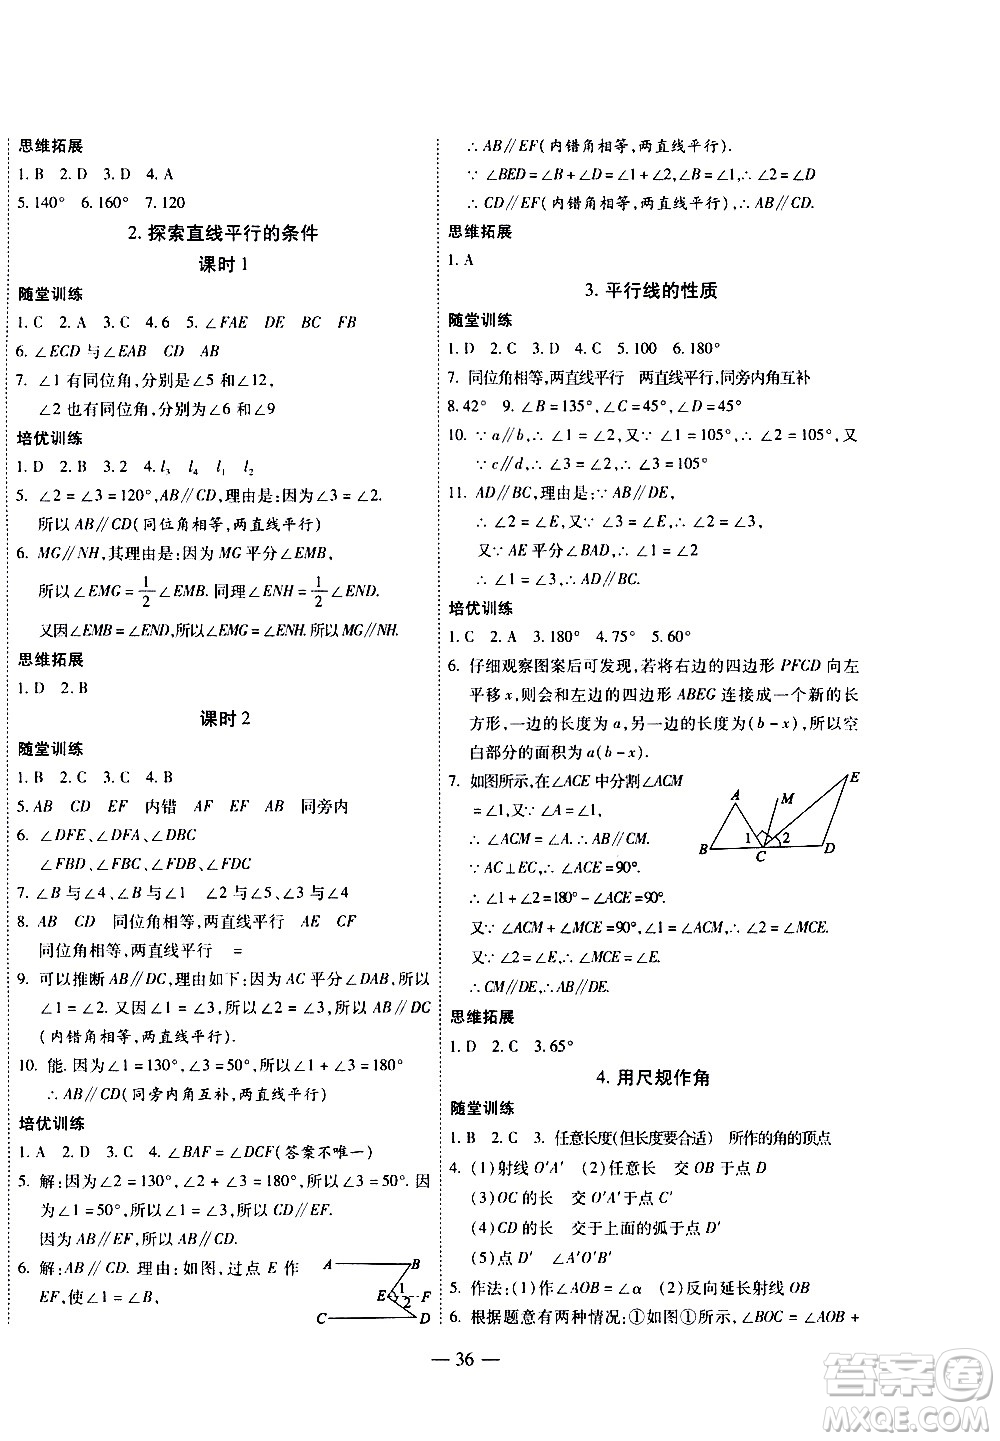 思维拓展
1. B  2. D  3. D  4. A
5. 140°  6. 160°  7. 120
2. 探索直线平行的条件
课时 1
随堂训练
1. C  2. A  3. C  4. 6  5. ∠FAE  DE  BC  FB
6. ∠ECD 与∠EAB  CD  AB
7. ∠1 有同位角,分别是∠5 和∠12,
∠2 也有同位角,分别为∠6 和∠9
培优训练
1. D  2. B  3. 2  4. l₃  l₄  l₁  l₂
5. ∠2 = ∠3 = 120°,AB∥CD,理由是:因为∠3 = ∠2.
所以 AB∥CD(同位角相等,两直线平行)
6. MG∥NH,其理由是:因为 MG 平分∠EMB,
所以∠EMG = 1/2∠EMB. 同理∠ENH = 1/2∠END.
又因∠EMB = ∠END,所以∠EMG = ∠ENH. 所以 MG∥NH.
思维拓展
1. D  2. B
课时 2
随堂训练
1. B  2. C  3. C  4. B
5. AB  CD  EF  内错  AF  EF  AB  同旁内
6. ∠DFE、∠DFA、∠DBC
∠FBD、∠FBC、∠FDB、∠FDC
7. ∠B 与∠4  ∠B 与∠1  ∠3 与∠4
8. AB  CD  同位角相等,两直线平行  AE  CF
同位角相等,两直线平行  =
9. 可以推断 AB∥DC,理由如下:因为 AC 平分∠DAB,所以
∠1 = ∠2. 又因为∠1 = ∠3,所以∠2 = ∠3,所以 AB∥DC
(内错角相等,两直线平行).
10. 能. 因为∠1 = 130°,∠3 = 50°,所以∠1 + ∠3 = 180°
∴ AB∥CD(同旁内角互补,两直线平行)
培优训练
1. A  2. D  3. D  4. ∠BAF = ∠DCF(答案不唯一)
5. 解:因为∠2 = 130°,∠2 + ∠3 = 180°,所以∠3 = 50°. 因
∠1 = 50°,所以∠1 = ∠3,所以 CD∥EF.
因为 AB∥EF,所以 AB∥CD.
6. 解:AB∥CD. 理由:如图,过点 E 作
EF,使∠1 = ∠B,
A B
E 1 F
2
C D
∴ AB∥EF(内错角相等,两直线平行).
∵ ∠BED = ∠B + ∠D = ∠1 + ∠2,∴ ∠2 = ∠D
∴ CD∥EF(内错角相等,两直线平行),∴ AB∥CD.
思维拓展
1. A
3. 平行线的性质
随堂训练
1. D  2. C  3. D  4. C  5. 100  6. 180°
7. 同位角相等,两直线平行  两直线平行,同旁内角互补
8. 42°  9. ∠B = 135°,∠C = 45°,∠D = 45°
10. ∵ a∥b,∴ ∠1 = ∠2,又∠1 = 105°,∴ ∠2 = 105°,又
∵ c∥d,∴ ∠2 = ∠3,∴ ∠3 = 105°
11. AD∥BC,理由是:∵ AB∥DE,
∴ ∠2 = ∠E,又∵ ∠1 = ∠E,∴ ∠1 = ∠2,
又∵ AE 平分∠BAD,∴ ∠1 = ∠3,
∴ ∠3 = ∠E,∴ AD∥BC.
培优训练
1. C  2. A  3. 180°  4. 75°  5. 60°
6. 仔细观察图案后可发现,若将右边的四边形 PFCD 向左
平移 x,则会和左边的四边形 ABEG 连接成一个新的长
方形,一边的长度为 a,另一边的长度为(b - x),所以空
白部分的面积为 a(b - x).
7. 如图所示,在∠ACE 中分割∠ACM
= ∠1,又∵ ∠A = ∠1,
∴ ∠ACM = ∠A. ∴ AB∥CM
∵ AC⊥EC,∴ ∠ACE = 90°.
∴ ∠1 + ∠2 = 180° - ∠ACE = 90°.
又∵ ∠ACM + ∠MCE = 90°,∴ ∠2 = ∠MCE.
又∵ ∠2 = ∠E,∴ ∠MCE = ∠E.
∴ CM∥DE,∴ AB∥DE.
A M E
1 2
B C D
思维拓展
1. D  2. C  3. 65°
4. 用尺规作角
随堂训练
1. B  2. C  3. 任意长度(但长度要合适)  所作的角的顶点
4. (1)射线 O′A′  (2)任意长  交 OB 于点 D
(3)OC 的长  交 O′A′于点 C′
(4)CD 的长  交于上面的弧于点 D′
(5)点 D′  ∠A′O′B′
5. 作法:(1)作∠AOB = ∠α  (2)反向延长射线 OB
6. 根据题意有两种情况:①如图①所示,∠BOC = ∠AOB +
— 36 —
答案圈
MXQE.COM